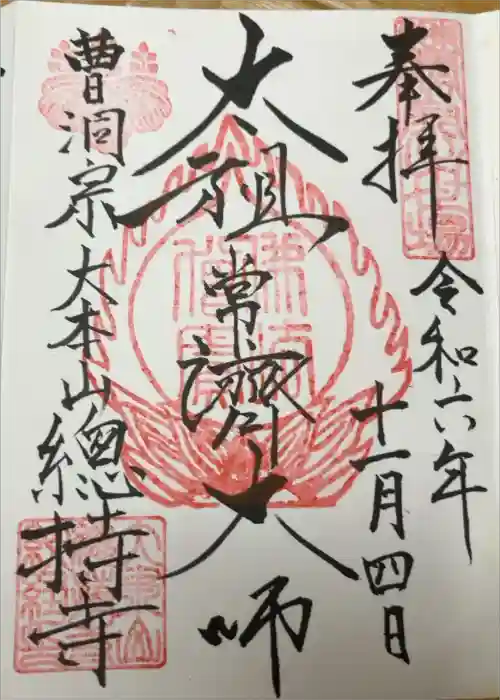 奉拝
令和六年
十一月四日
太祖常濟大師
曹洞宗
大本山總持寺